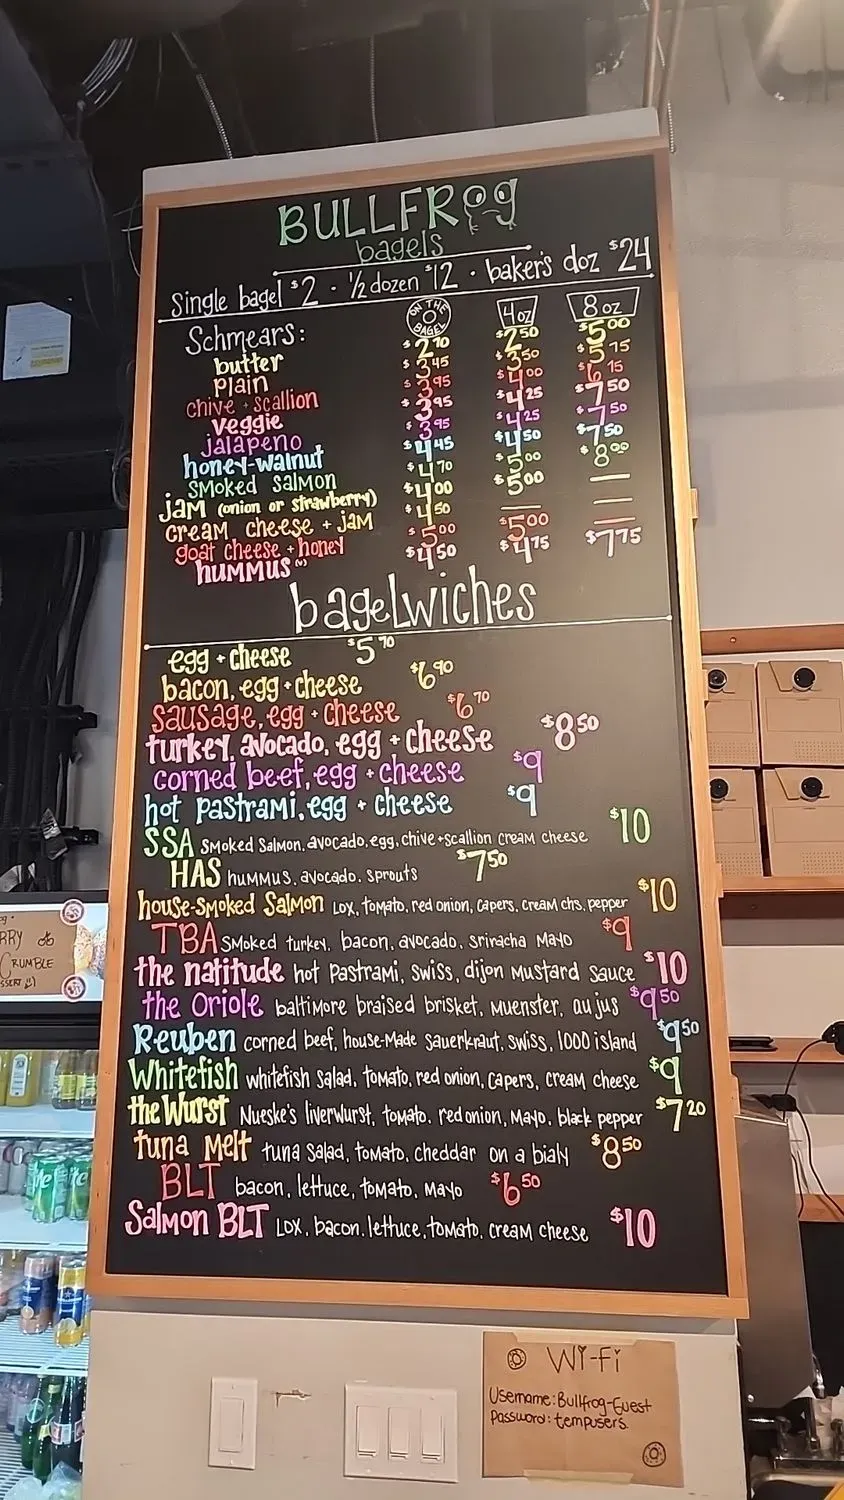 BULLFROG
bagels
Single bagel $2 · 1/2 dozen $12 · baker's doz $24
Schmears: ON THE BAGEL 4oz 8oz
butter $2 70 $2 50 $5 00
plain $3 45 $3 50 $5 75
chive + scallion $3 95 $4 00 $6 75
veggie $3 95 $4 25 $7 50
jalapeno $3 95 $4 25 $7 50
honey-walnut $4 45 $4 50 $7 50
smoked salmon $4 70 $5 00 $8 00
jam (onion or strawberry) $4 00 $5 00 —
cream cheese + jam $4 50 — —
goat cheese + honey $5 00 $5 00 —
hummus (v) $4 50 $4 75 $7 75
bagelwiches
egg + cheese $5 70
bacon, egg + cheese $6 90
sausage, egg + cheese $6 70
turkey, avocado, egg + cheese $8 50
corned beef, egg + cheese $9
hot pastrami, egg + cheese $9
SSA smoked salmon, avocado, egg, chive + scallion cream cheese $10
HAS hummus, avocado, sprouts $7 50
house-smoked salmon lox, tomato, red onion, capers, cream chs, pepper $10
TBA smoked turkey, bacon, avocado, sriracha mayo $9
the natitude hot pastrami, swiss, dijon mustard sauce $10
the Oriole baltimore braised brisket, muenster, au jus $9 50
Reuben corned beef, house-made sauerkraut, swiss, 1000 island $9 50
Whitefish whitefish salad, tomato, red onion, capers, cream cheese $9
the Wurst Nueske's liverwurst, tomato, red onion, mayo, black pepper $7 20
tuna melt tuna salad, tomato, cheddar on a bialy $8 50
BLT bacon, lettuce, tomato, mayo $6 50
Salmon BLT lox, bacon, lettuce, tomato, cream cheese $10
RRY
CRUMBLE
Wi-Fi
Username: Bullfrog-Guest
Password: tempusers